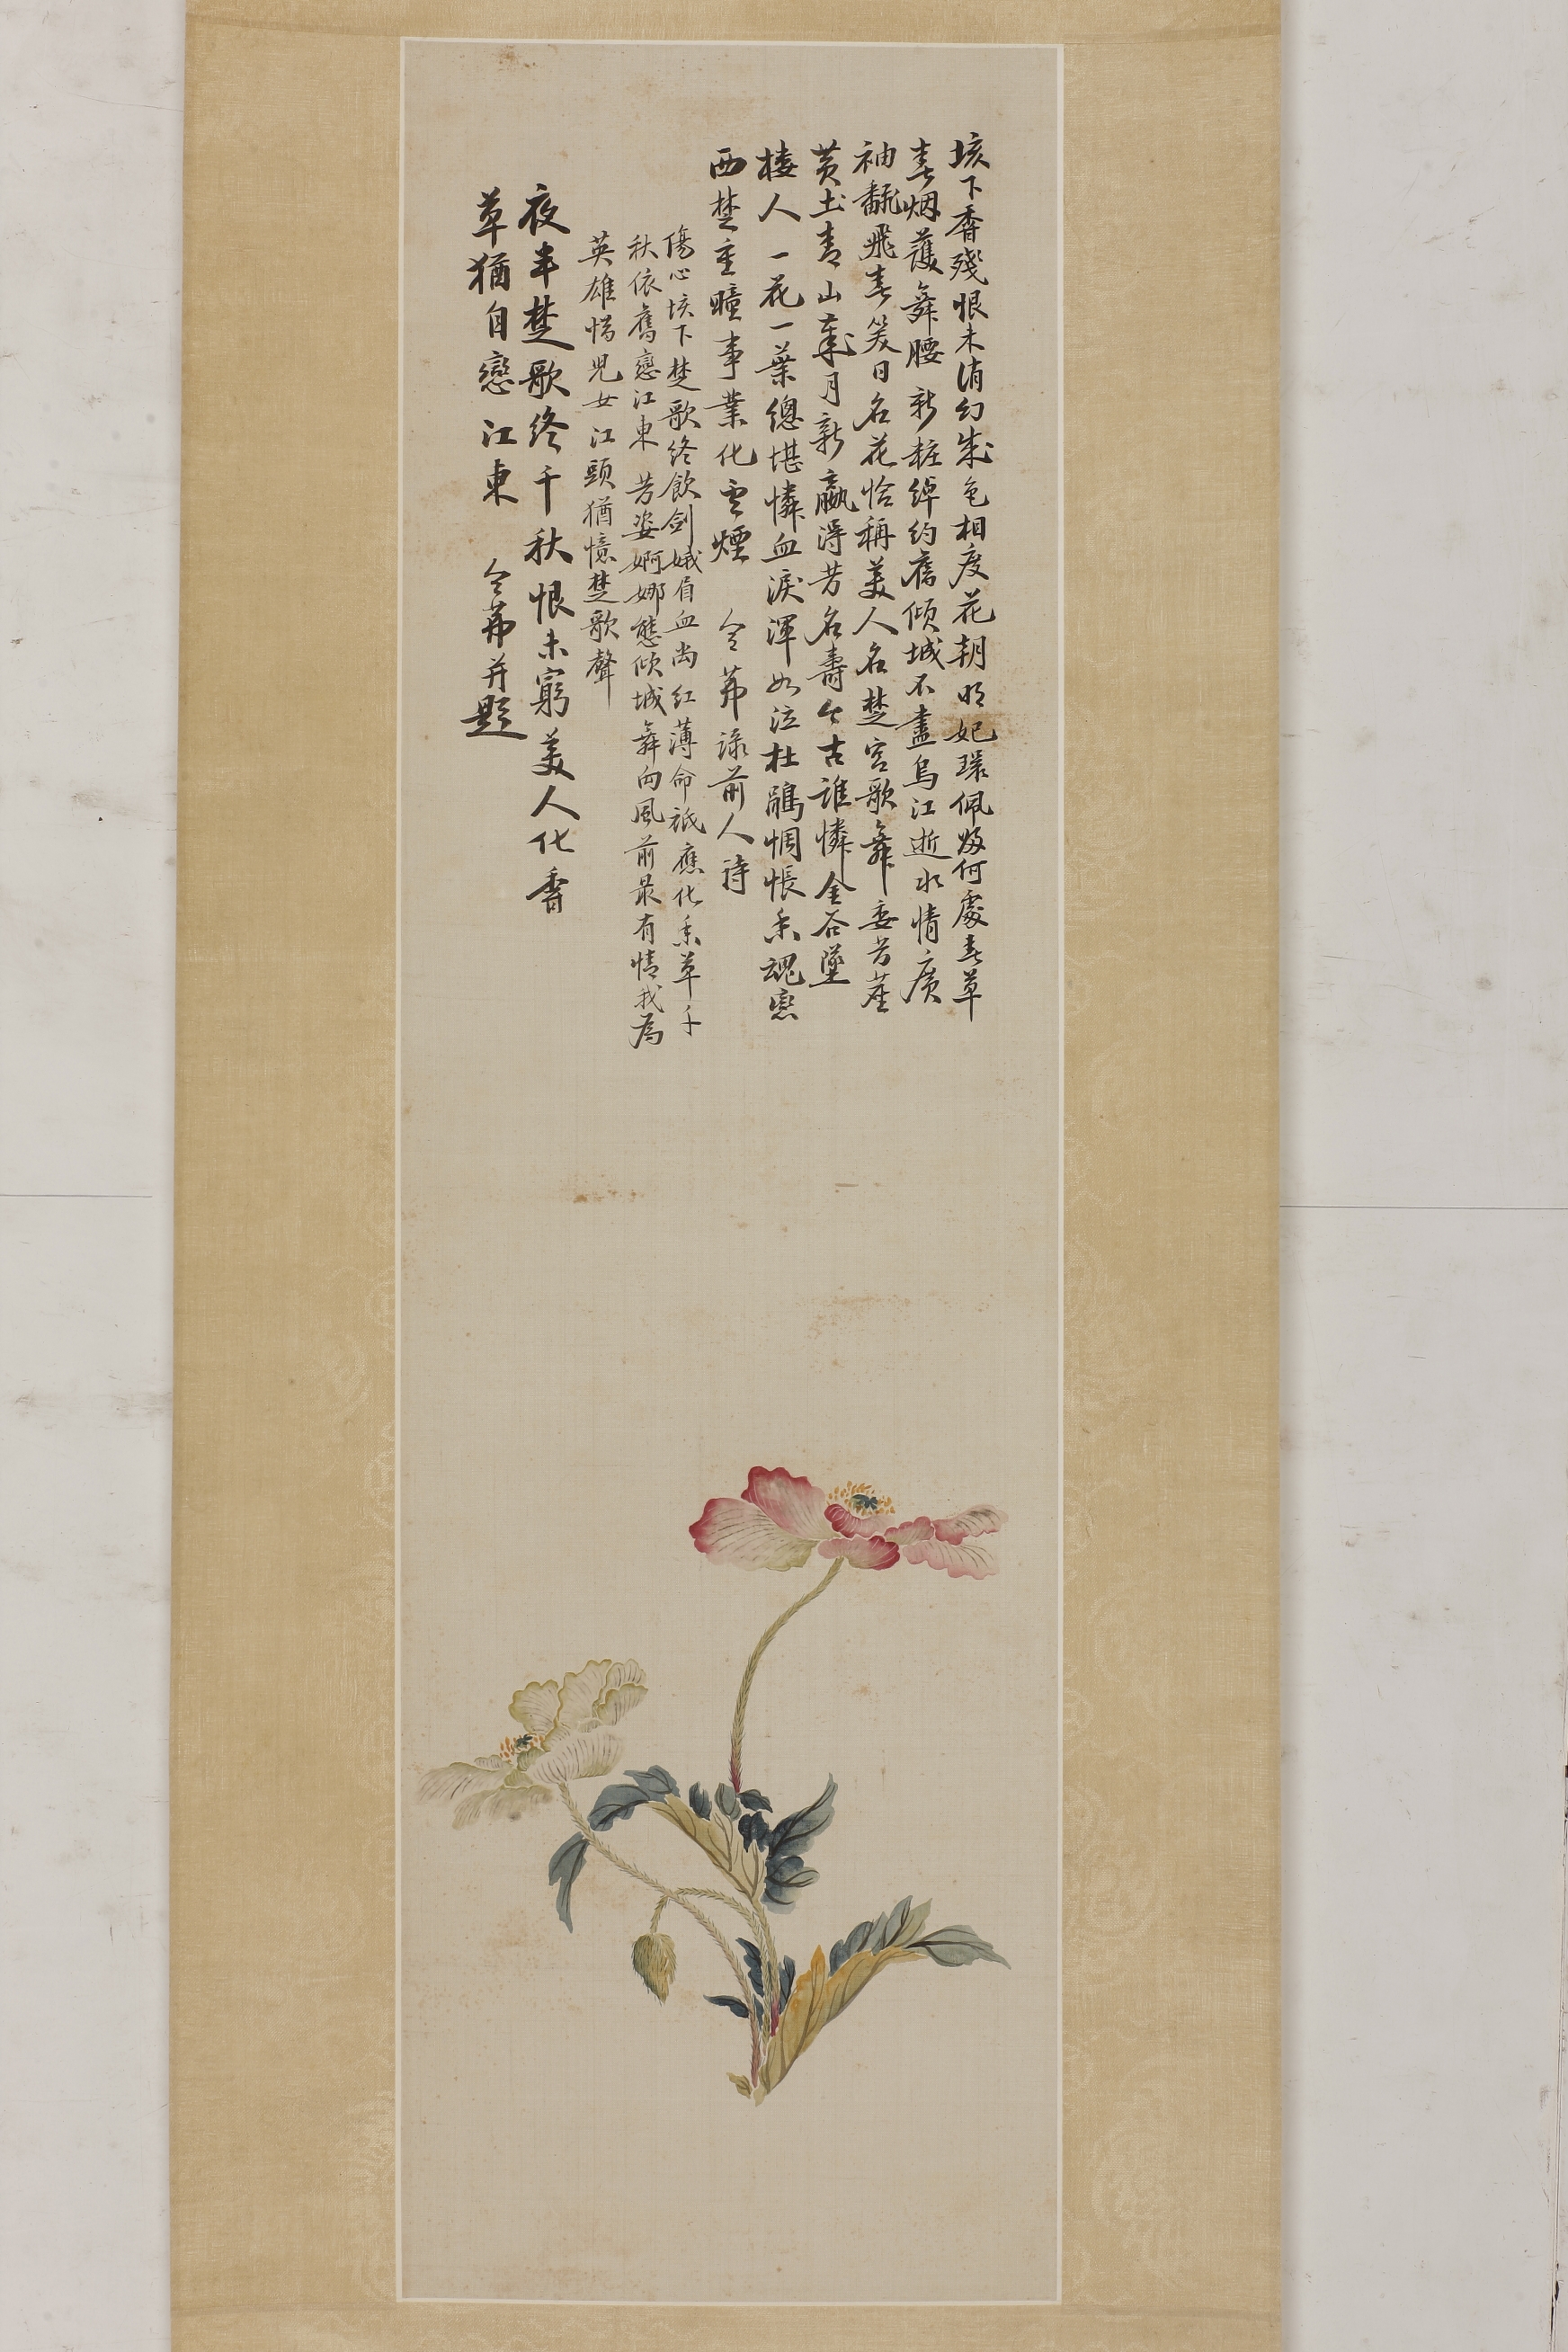 垓下香殘恨未消幻成色相度花朝明妃環佩歸何處春草
春烟護舞腰新粧綽約舊傾城不盡烏江逝水情廣
袖翻飛春笑日名花恰稱美人名楚宮歌舞委芳塵
黃土青山歲月新贏得芳名壽千古誰憐金谷墜
樓人一花一葉總堪憐血淚渾如泣杜鵑惆悵香魂戀
西楚重瞳事業化雲煙 令茀錄前人詩
傷心垓下楚歌終飲劍娥眉血尚紅薄命祇應化香草千
秋依舊戀江東芳姿婀娜態傾城舞向風前最有情我為
英雄惜兒女江頭猶憶楚歌聲
夜半楚歌終千秋恨未窮美人化香
草猶自戀江東 令茀并題